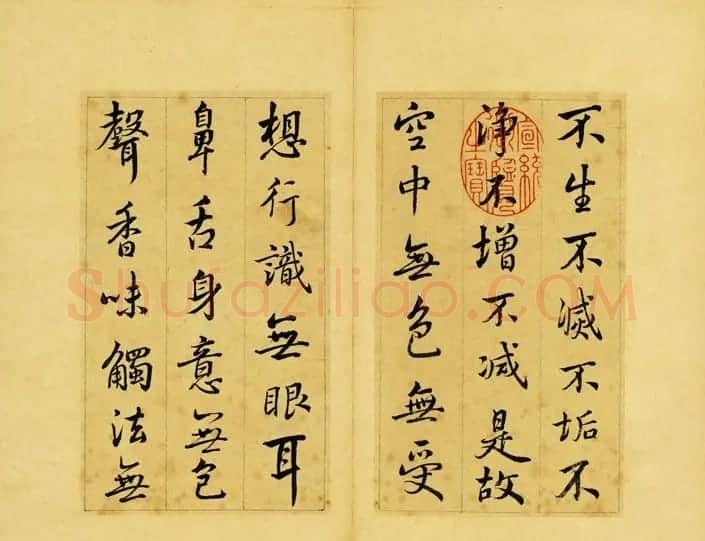 不生不滅不垢不
淨不增不減是故
空中無色無受
想行識無眼耳
鼻舌身意無色
聲香味觸法無
宣統御覽之寶
Shufaziliao.COM